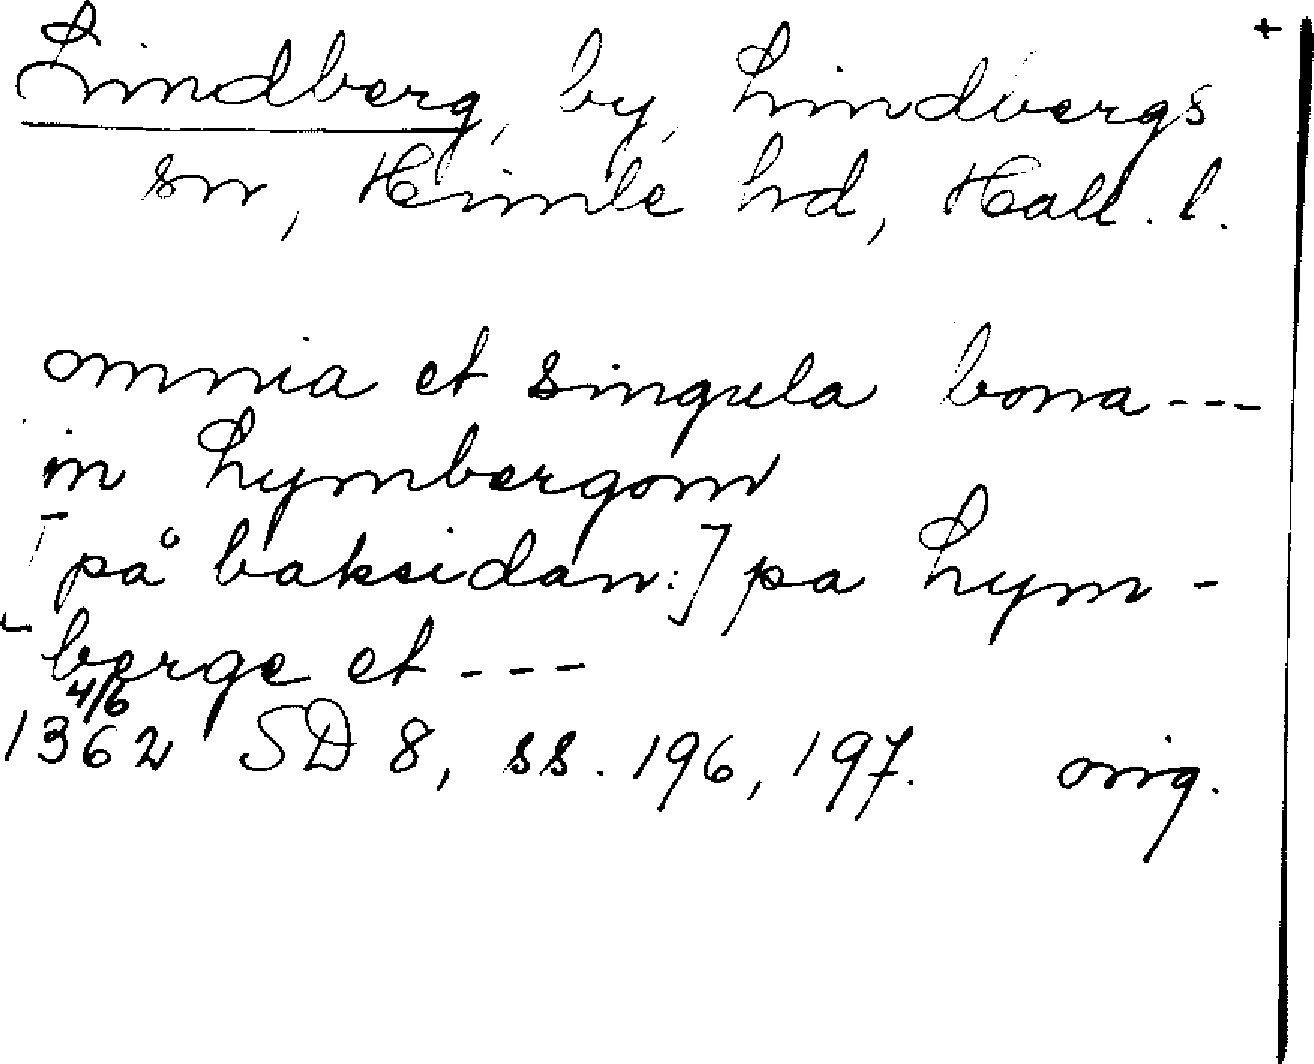 +
Lindberg, by, Lindbergs
sn, Himle hd, Hall. l.
omnia et singula bona ---
in Lymbergom
[på baksidan:] pa Lym-
berge et ---
4/6
1362 SD 8, ss. 196, 197. orig.